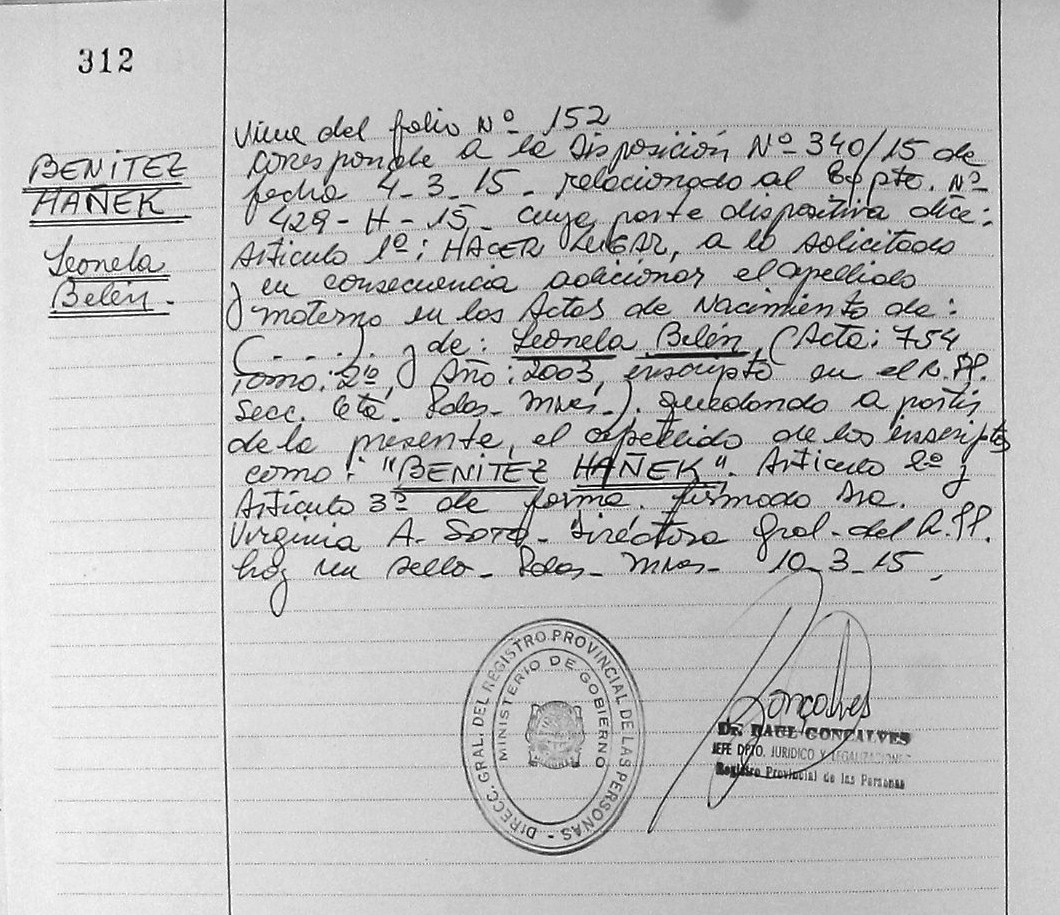 312
BENITEZ
HAÑEK
Leonela
Belén.-
Viene del folio Nº 152
corresponde a la Disposición Nº 340/15 de
fecha 4-3-15- relacionado al Expte. Nº
429-H-15- cuya parte dispositiva dice:
Artículo 1º: HACER LUGAR, a lo solicitado
y en consecuencia adicionar el apellido
materno en los Actas de Nacimiento de:
(. . . .). y de: Leonela Belén, (Acta: 754
Tomo: 2º, Año: 2003, inscripto en el R.PP.
Secc. 6ta. Pdas- Mnes-). quedando a partir
de la presente, el apellido de los inscriptos
como: "BENITEZ HAÑEK". Artículo 2º y
Artículo 3º de forma. firmado Dra.
Virginia A. SOTO- Directora Gral- del R.PP.
hay un sello- Pdas- Mnes- 10-3-15,
DIRECC. GRAL. DEL REGISTRO PROVINCIAL DE LAS PERSONAS -
MINISTERIO DE GOBIERNO
Gonçalves
Dr. RAUL GONCALVES
JEFE DPTO. JURIDICO Y LEGALIZACIONES
Registro Provincial de las Personas